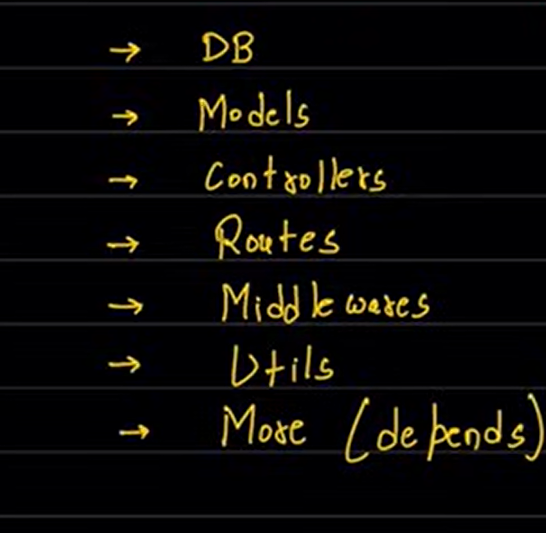 → DB
→ Models
→ Controllers
→ Routes
→ Middlewares
→ Utils
→ More (depends)